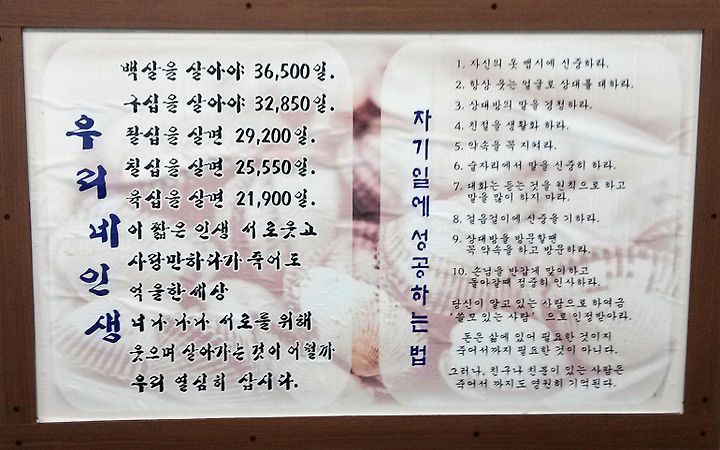 우리네인생
백살을 살아야 36,500일.
구십을 살아야 32,850일.
팔십을 살면 29,200일.
칠십을 살면 25,550일.
육십을 살면 21,900일.
이 짧은 인생 서로웃고
사랑만하다가 죽어도
억울한 세상
너나 나나 서로를 위해
웃으며 살아가는것이 어떨까
우리 열심히 삽시다.
자기일에 성공하는 법
1. 자신의 옷 맵시에 신중하라.
2. 항상 웃는 얼굴로 상대를 대하라.
3. 상대방의 말을 경청하라.
4. 친절을 생활화 하라.
5. 약속을 꼭 지켜라.
6. 술자리에서 말을 신중히 하라.
7. 대화는 듣는 것을 원칙으로 하고
말을 많이 하지 마라.
8. 걸음걸이에 신중을 기하라.
9. 상대방을 방문할땐
꼭 약속을 하고 방문하라.
10. 손님을 반갑게 맞이하고
돌아갈때 정중히 인사하라.
당신이 알고 있는 사람으로 하여금
'쓸모 있는 사람' 으로 인정받아라.
돈은 삶에 있어 필요한 것이지
죽어서까지 필요한 것이 아니다.
그러나, 친구나 친분이 있는 사람은
죽어서 까지도 영원히 기억된다.